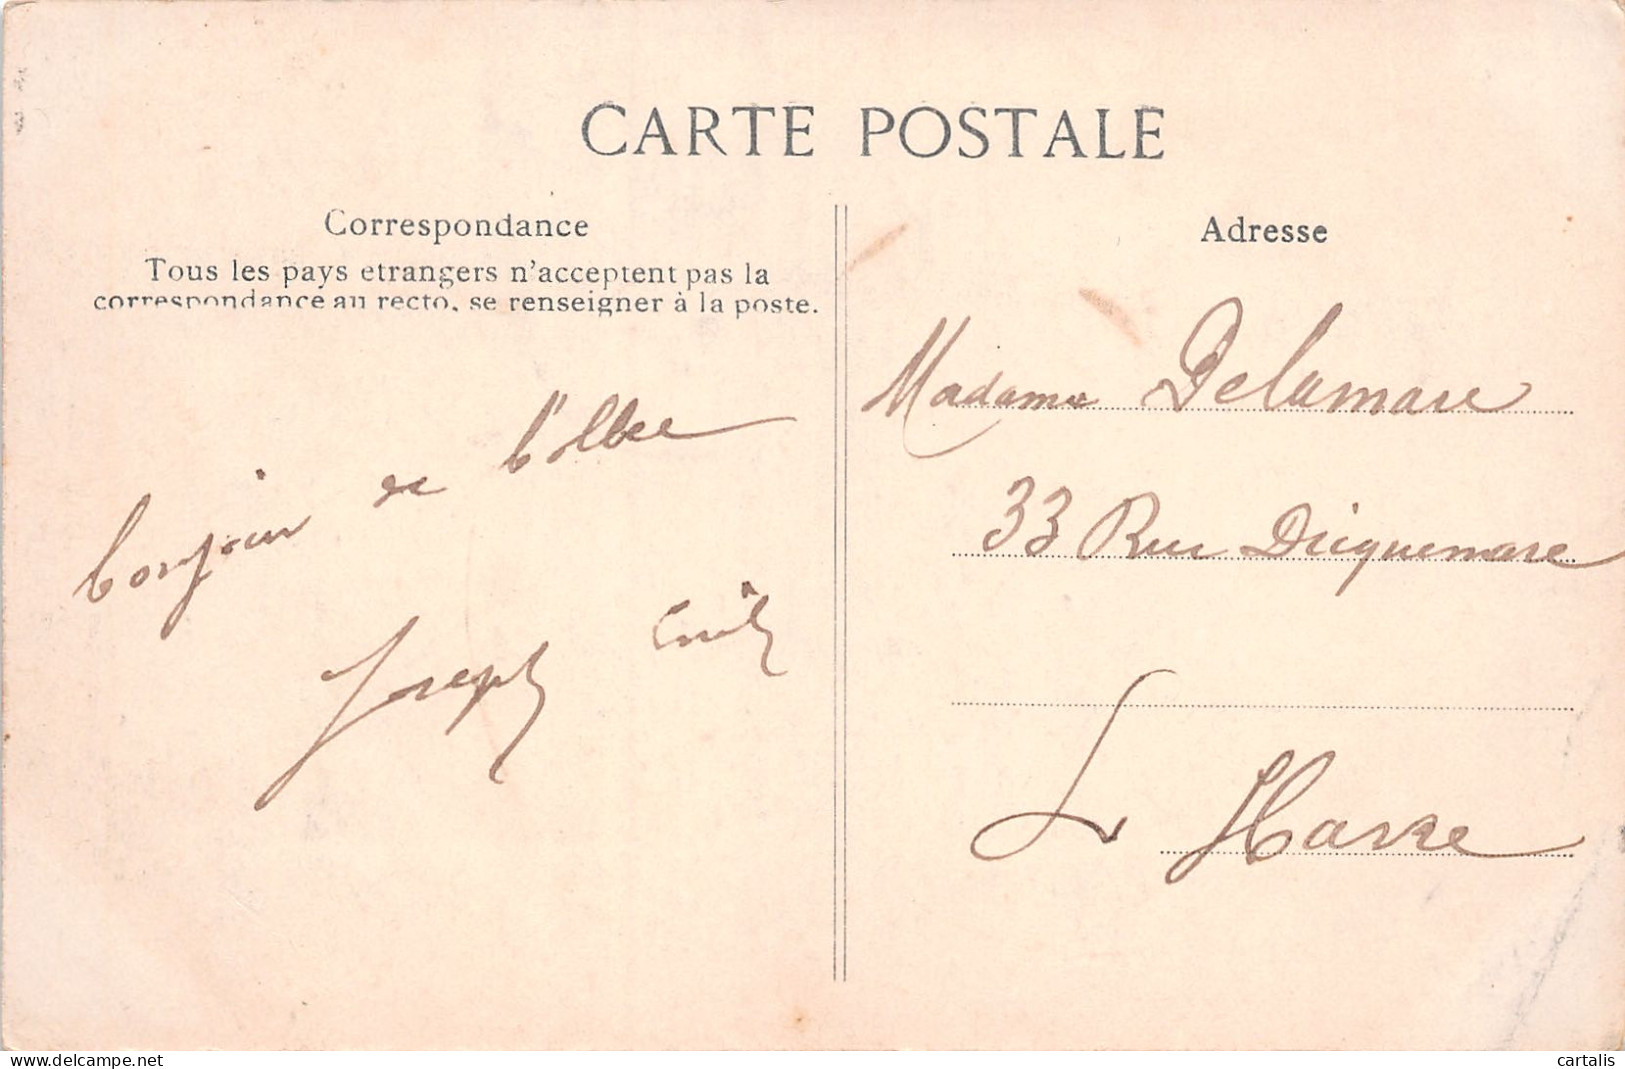 CARTE POSTALE
Correspondance
Tous les pays etrangers n'acceptent pas la
correspondance au recto, se renseigner à la poste.
bonjour de Bolbec
Joseph Emile
Adresse
Madame Delamare
33 Rue Dicquemare
Le Havre
www.delcampe.net
cartalis